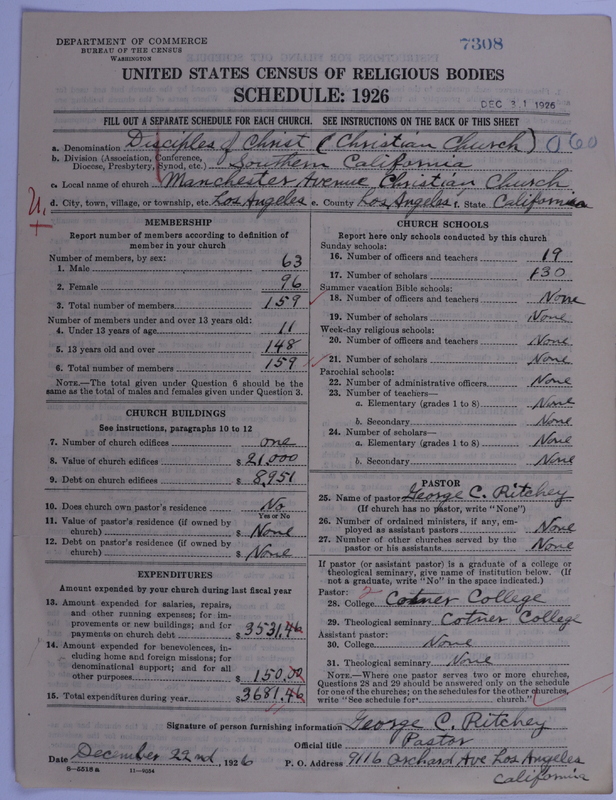 DEPARTMENT OF COMMERCE
BUREAU OF THE CENSUS
WASHINGTON
7308
UNITED STATES CENSUS OF RELIGIOUS BODIES
SCHEDULE: 1926
DEC 31 1926
FILL OUT A SEPARATE SCHEDULE FOR EACH CHURCH. SEE INSTRUCTIONS ON THE BACK OF THIS SHEET
a. Denomination Disciples of Christ (Christian Church) 060
b. Division (Association, Conference, Diocese, Presbytery, Synod, etc.) Southern California
c. Local name of church Manchester Avenue Christian Church
d. City, town, village, or township, etc. Los Angeles e. County Los Angeles f. State California
U.
MEMBERSHIP
Report number of members according to definition of
member in your church
Number of members, by sex:
1. Male 63
2. Female 96
3. Total number of members 159
Number of members under and over 13 years old:
4. Under 13 years of age 11
5. 13 years old and over 148
6. Total number of members 159
NOTE.—The total given under Question 6 should be the
same as the total of males and females given under Question 3.
CHURCH BUILDINGS
See instructions, paragraphs 10 to 12
7. Number of church edifices one
8. Value of church edifices $ 21,000
9. Debt on church edifices $ 8,951
10. Does church own pastor's residence No
Yes or No
11. Value of pastor's residence (if owned by
church) $ None
12. Debt on pastor's residence (if owned by
church) $ None
EXPENDITURES
Amount expended by your church during last fiscal year
13. Amount expended for salaries, repairs,
and other running expenses; for im-
provements or new buildings; and for
payments on church debt $ 3531.46
14. Amount expended for benevolences, in-
cluding home and foreign missions; for
denominational support; and for all
other purposes $ 150.00
15. Total expenditures during year $ 3681.46
CHURCH SCHOOLS
Report here only schools conducted by this church
Sunday schools:
16. Number of officers and teachers 19
17. Number of scholars 130
Summer vacation Bible schools:
18. Number of officers and teachers None
19. Number of scholars None
Week-day religious schools:
20. Number of officers and teachers None
21. Number of scholars None
Parochial schools:
22. Number of administrative officers None
23. Number of teachers—
a. Elementary (grades 1 to 8) None
b. Secondary None
24. Number of scholars—
a. Elementary (grades 1 to 8) None
b. Secondary None
PASTOR
25. Name of pastor George C. Ritchey
(If church has no pastor, write "None")
26. Number of ordained ministers, if any, em-
ployed as assistant pastors None
27. Number of other churches served by the
pastor or his assistants None
If pastor (or assistant pastor) is a graduate of a college or
theological seminary, give name of institution below. (If
not a graduate, write "No" in the space indicated.)
Pastor:
28. College Cotner College
29. Theological seminary Cotner College
Assistant pastor:
30. College None
31. Theological seminary None
NOTE.—Where one pastor serves two or more churches,
Questions 28 and 29 should be answered only on the schedule
for one of the churches; on the schedules for the other churches,
write "See schedule for church."
Signature of person furnishing information George C. Ritchey
Official title Pastor
Date December 22nd, 1926 P. O. Address 9116 Orchard Ave Los Angeles
California
8-5518 a 11-9034